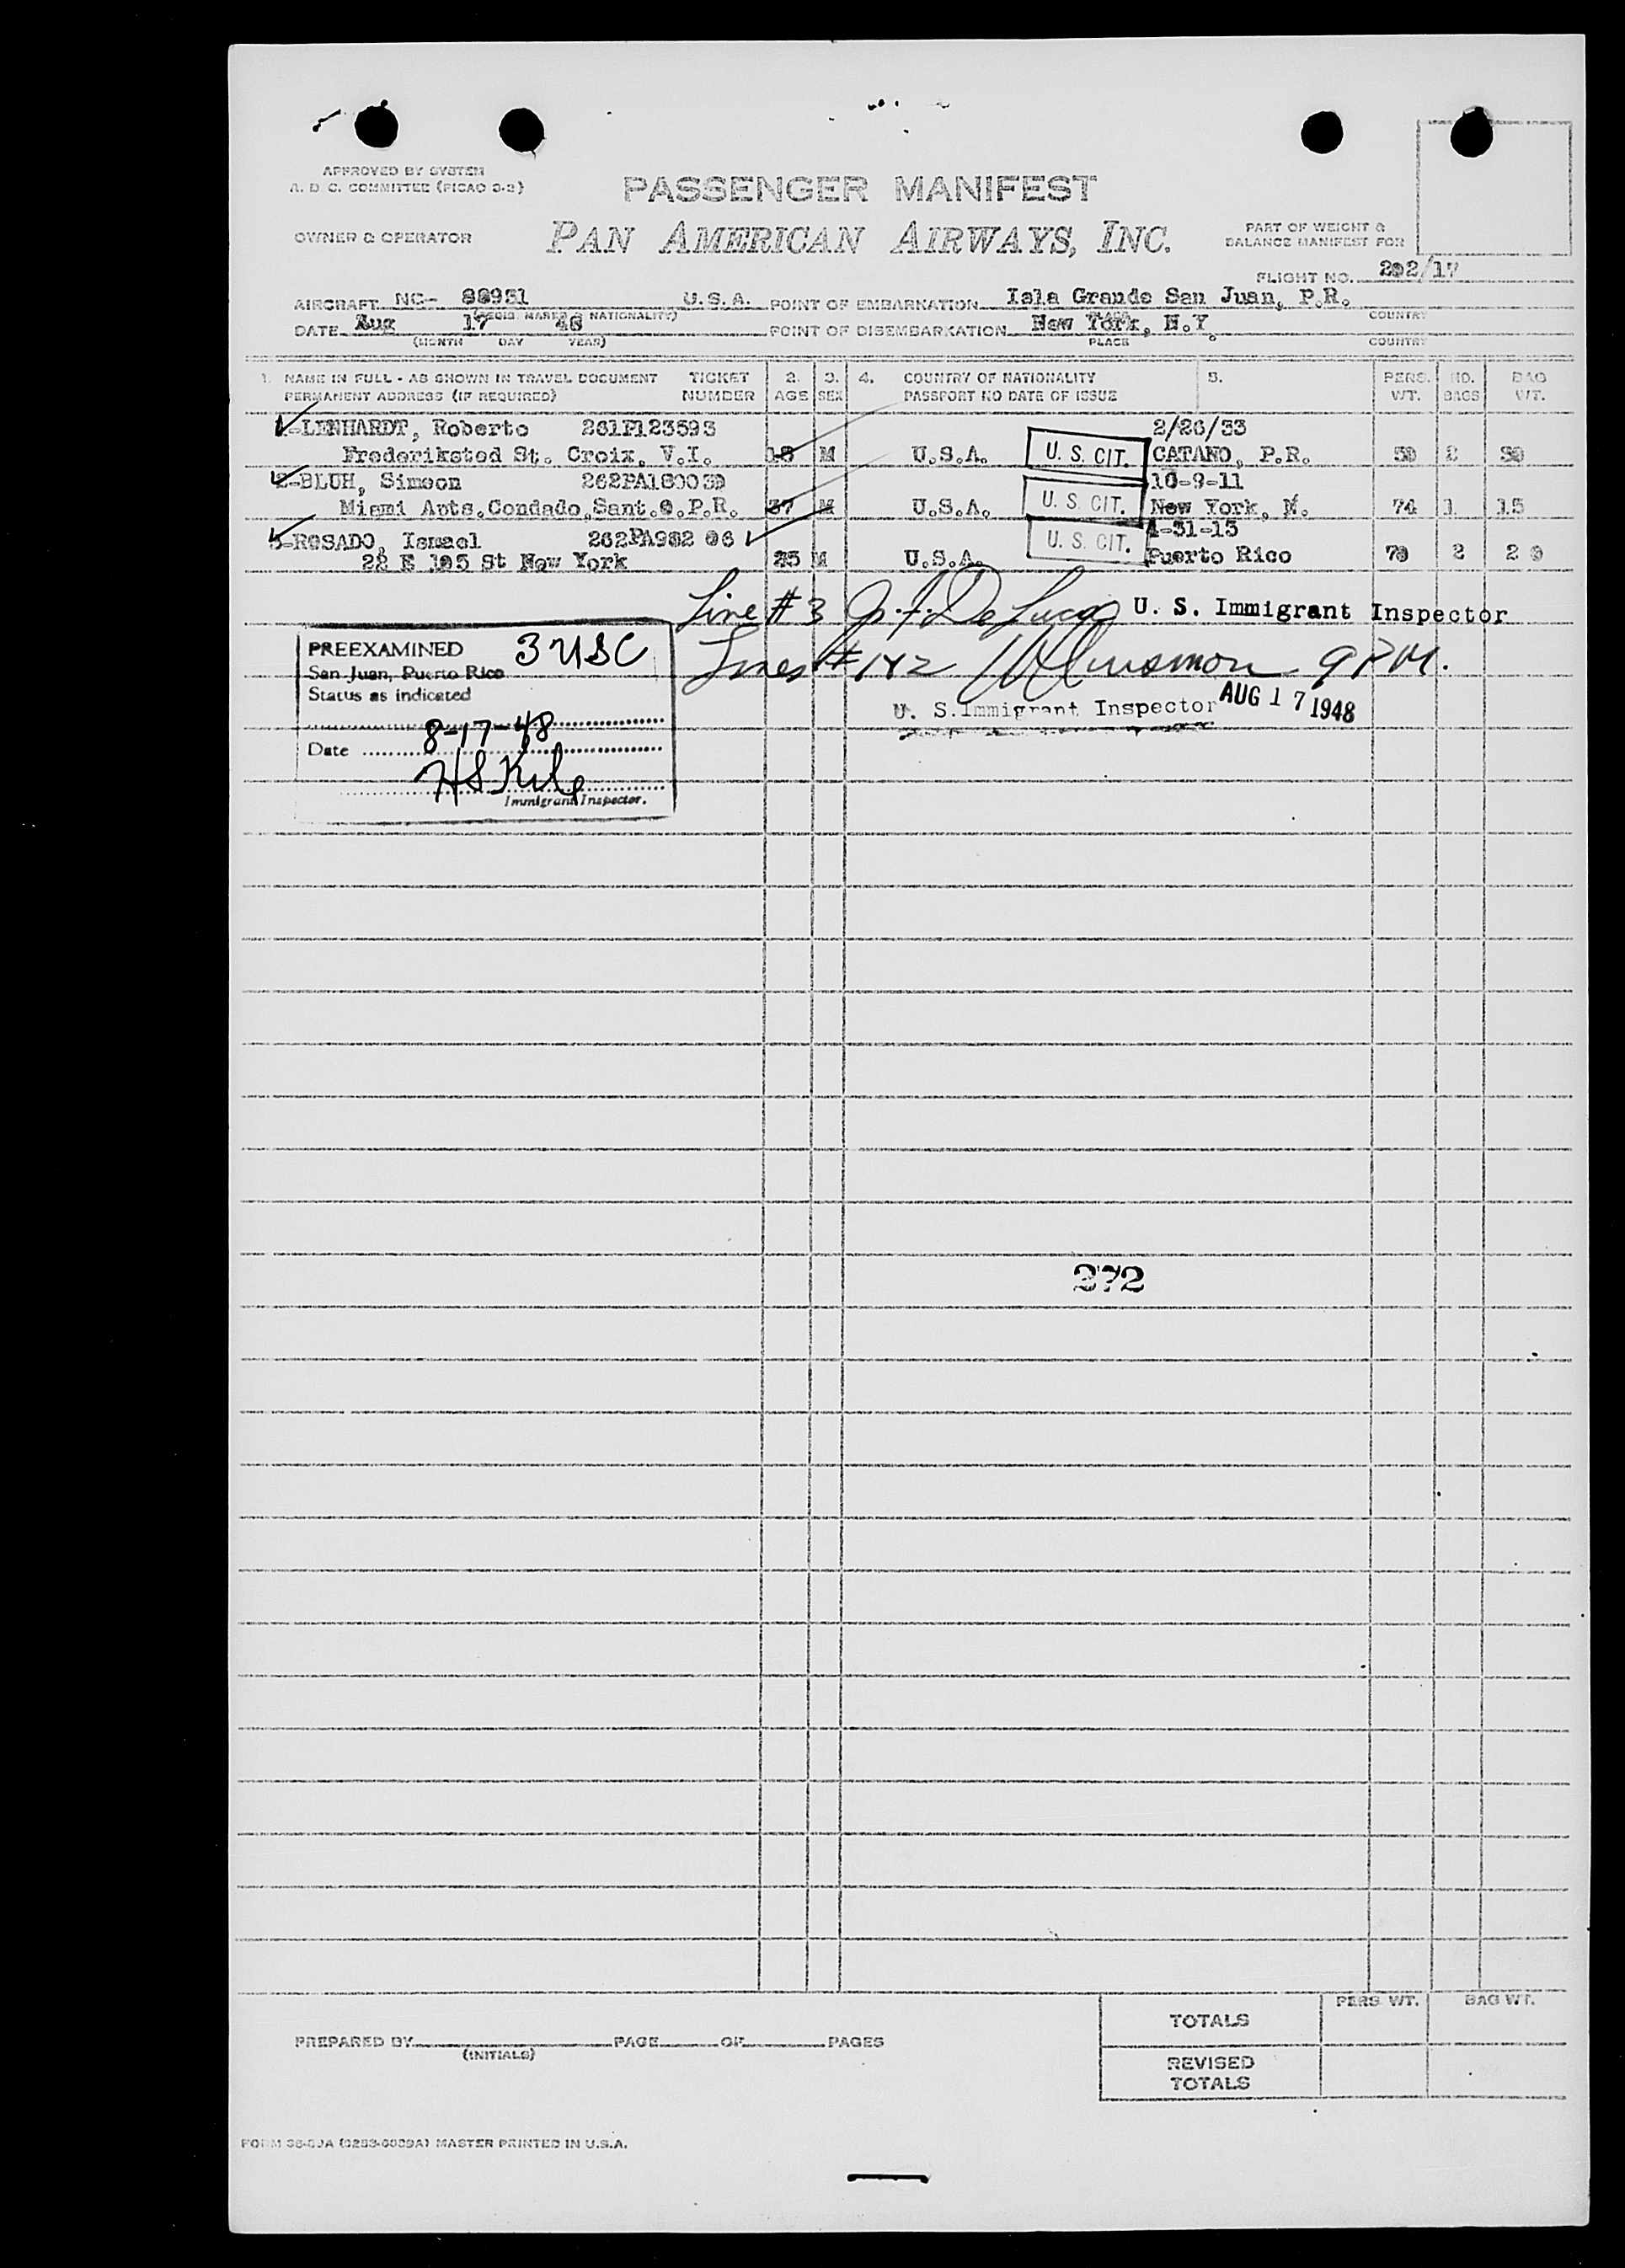 APPROVED BY SYSTEM
A. D. C. COMMITTEE (PICAO
PASSENGER MANIFEST
OWNER & OPERATOR
PAN AMERICAN AIRWAYS, INC.
PART OF WEIGHT &
BALANCE MANIFEST FOR
FLIGHT NO. 202/17
AIRCRAFT NC- 88951 U.S.A. POINT OF EMBARKATION Isla Grande San Juan, P.R.
(REGIS. MARKS & NATIONALITY) PLACE COUNTRY
DATE Aug 17 48 POINT OF DISEMBARKATION New York, N.Y.
(MONTH DAY YEAR) PLACE COUNTRY
1. NAME IN FULL - AS SHOWN IN TRAVEL DOCUMENT TICKET 2. 3. 4. COUNTRY OF NATIONALITY 5. PERS. NO. BAG
PERMANENT ADDRESS (IF REQUIRED) NUMBER AGE SEX PASSPORT NO DATE OF ISSUE WT. BAGS WT.
1-LENHARDT, Roberto 2/26/33
Frederiksted St. Croix, V.I. M U.S.A. U. S. CIT. CATANO, P.R. 2
2-BLUH, Simeon 10-9-11
Miami Apts.Condado,Sant. P.R. 37 M U.S.A. U. S. CIT. New York, N. 74 1 15
3-ROSADO, Ismael
22 E 105 St New York 35 M U.S.A. U. S. CIT. Puerto Rico 2
Line # 3 U. S. Immigrant Inspector
Lines # 1 & 2 9 P.M.
U. S. Immigrant Inspector AUG 17 1948
PREEXAMINED 3 USC
San Juan, Puerto Rico
Status as indicated
Date 8-17-48
Immigrant Inspector.
272
TOTALS PERS WT. BAG WT.
PREPARED BY PAGE OF PAGES
(INITIALS)
REVISED
TOTALS
MASTER PRINTED IN U.S.A.